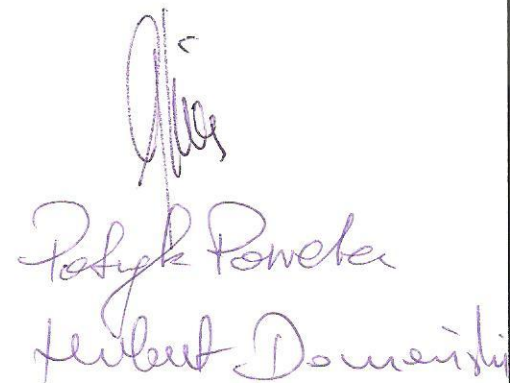 Patryk Pawela
Herbert Domański